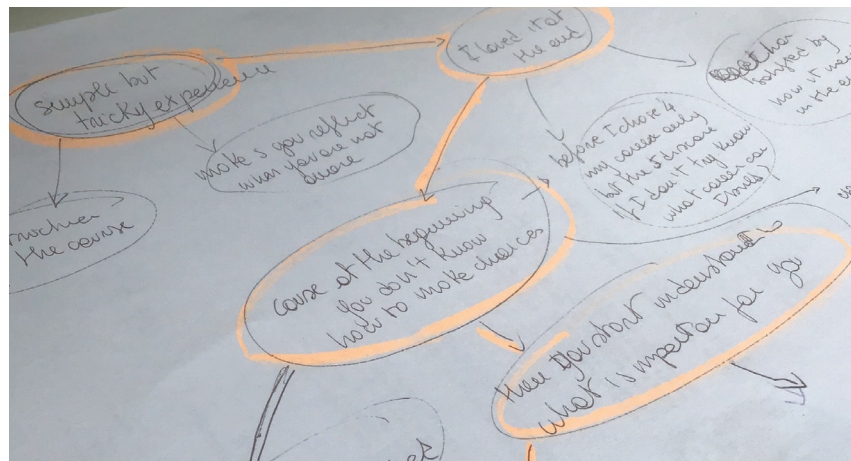 simple but
tricky experience
I loved it at
the end
satisfied by
how it
in the
makes you reflect
when you are not
aware
before I chose 4
my career only
but the 5 discover
if I don't try know
what career can
the course
cause at the beginning
you don't know
how to make choices
then I you start understand
what is importan for you